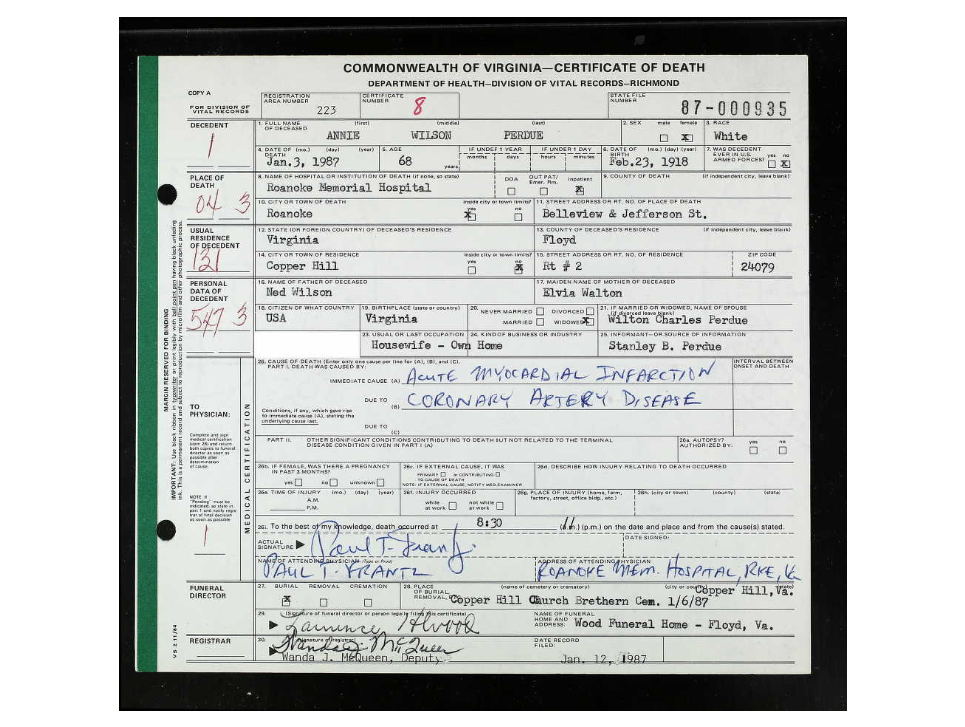 COMMONWEALTH OF VIRGINIA—CERTIFICATE OF DEATH
DEPARTMENT OF HEALTH—DIVISION OF VITAL RECORDS—RICHMOND
COPY A
FOR DIVISION OF VITAL RECORDS
REGISTRATION AREA NUMBER 223
CERTIFICATE NUMBER 8
STATE FILE NUMBER 87-000935
DECEDENT
1
1. FULL NAME OF DECEASED (first) (middle) (last)
ANNIE WILSON PERDUE
2. SEX male female
3. RACE White
4. DATE OF DEATH (mo.) (day) (year) Jan.3, 1987
5. AGE 68 years
IF UNDER 1 YEAR months days
IF UNDER 1 DAY hours minutes
6. DATE OF BIRTH (mo.) (day) (year) Feb.23, 1918
7. WAS DECEDENT EVER IN U.S. ARMED FORCES? yes no
PLACE OF DEATH
04 3
8. NAME OF HOSPITAL OR INSTITUTION OF DEATH (if none, so state)
Roanoke Memorial Hospital
DOA OUT PAT/ Emer. Rm. Inpatient
9. COUNTY OF DEATH (if independent city, leave blank)
10. CITY OR TOWN OF DEATH inside city or town limits? yes no
Roanoke
11. STREET ADDRESS OR RT. NO. OF PLACE OF DEATH
Belleview & Jefferson St.
USUAL RESIDENCE OF DECEDENT
131
12. STATE (OR FOREIGN COUNTRY) OF DECEASED'S RESIDENCE
Virginia
13. COUNTY OF DECEASED'S RESIDENCE (if independent city, leave blank)
Floyd
14. CITY OR TOWN OF RESIDENCE inside city or town limits? yes no
Copper Hill
15. STREET ADDRESS OR RT. NO. OF RESIDENCE
Rt # 2
ZIP CODE
24079
PERSONAL DATA OF DECEDENT
547 3
16. NAME OF FATHER OF DECEASED
Ned Wilson
17. MAIDEN NAME OF MOTHER OF DECEASED
Elvia Walton
18. CITIZEN OF WHAT COUNTRY
USA
19. BIRTHPLACE (state or country)
Virginia
20. NEVER MARRIED DIVORCED MARRIED WIDOWED
21. IF MARRIED OR WIDOWED, NAME OF SPOUSE (if divorced leave blank)
Wilton Charles Perdue
23. USUAL OR LAST OCCUPATION 24. KIND OF BUSINESS OR INDUSTRY
Housewife - Own Home
25. INFORMANT—OR SOURCE OF INFORMATION
Stanley B. Perdue
MARGIN RESERVED FOR BINDING
TO PHYSICIAN:
MEDICAL CERTIFICATION
26. CAUSE OF DEATH (Enter only one cause per line for (A), (B), and (C).
PART I. DEATH WAS CAUSED BY:
INTERVAL BETWEEN ONSET AND DEATH
IMMEDIATE CAUSE (A) ACUTE MYOCARDIAL INFARCTION
DUE TO (B) CORONARY ARTERY DISEASE
Conditions, if any, which gave rise to immediate cause (A), stating the underlying cause last.
DUE TO (C)
PART II. OTHER SIGNIFICANT CONDITIONS CONTRIBUTING TO DEATH BUT NOT RELATED TO THE TERMINAL DISEASE CONDITION GIVEN IN PART I (A)
26a. AUTOPSY? AUTHORIZED BY: yes no
26b. IF FEMALE, WAS THERE A PREGNANCY IN PAST 3 MONTHS? yes no unknown
26c. IF EXTERNAL CAUSE, IT WAS
PRIMARY or CONTRIBUTING TO CAUSE OF DEATH
NOTE: IF EXTERNAL CAUSE, NOTIFY MED. EXAMINER
26d. DESCRIBE HOW INJURY RELATING TO DEATH OCCURRED
26e. TIME OF INJURY (mo.) (day) (year) A.M. P.M.
26f. INJURY OCCURRED while at work not while at work
26g. PLACE OF INJURY (home, farm, factory, street, office bldg., etc.)
26h. (city or town) (county) (state)
26i. To the best of my knowledge, death occurred at 8:30 (a.m.) (p.m.) on the date and place and from the cause(s) stated.
1
ACTUAL SIGNATURE Paul T. Frantz
DATE SIGNED:
NAME OF ATTENDING PHYSICIAN (Type or Print)
PAUL T. FRANTZ
ADDRESS OF ATTENDING PHYSICIAN
ROANOKE MEM. HOSPITAL, RKE, Va
FUNERAL DIRECTOR
27. BURIAL REMOVAL CREMATION
28. PLACE OF BURIAL, REMOVAL, (name of cemetery or crematory) (city or county) (state)
Copper Hill Church Brethern Cem. 1/6/87 Copper Hill, Va.
29. (Signature of funeral director or person legally filing this certificate)
Lawrence Atwood
NAME OF FUNERAL HOME AND ADDRESS: Wood Funeral Home - Floyd, Va.
REGISTRAR
30. (Signature of registrar)
Wanda J. McQueen
Wanda J. McQueen, Deputy
DATE RECORD FILED:
Jan. 12, 1987
VS 2 11/84